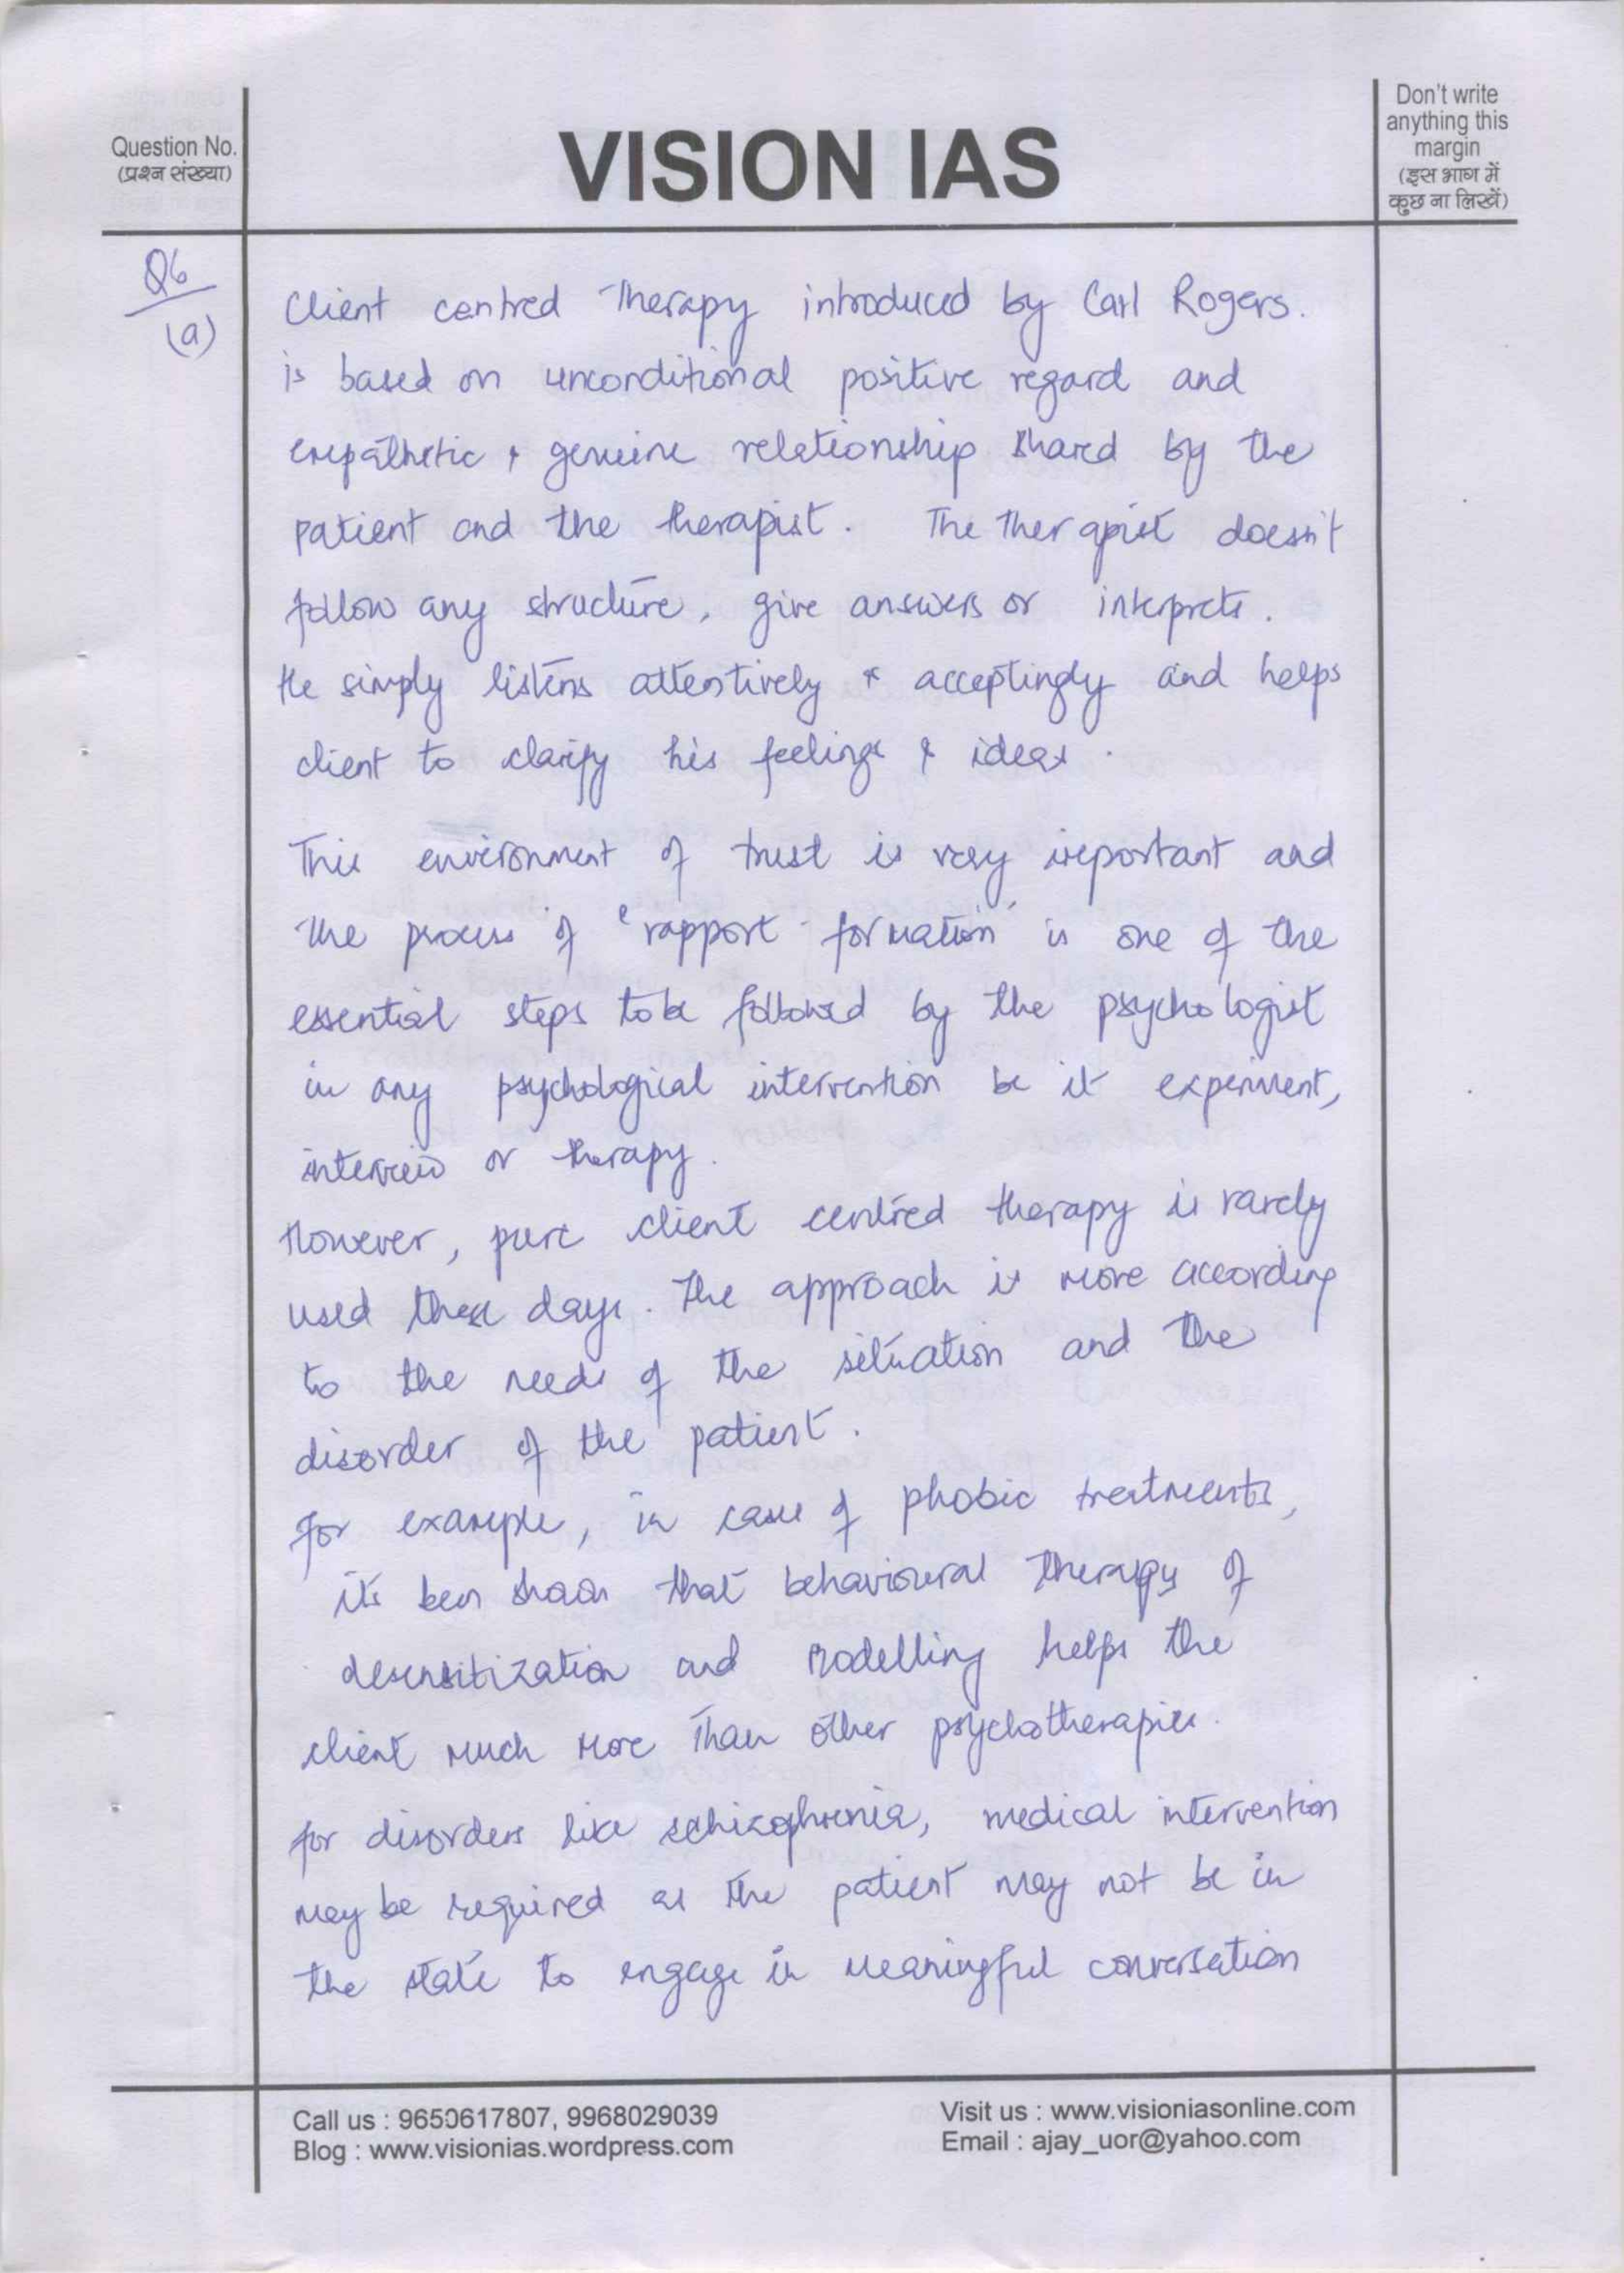 Question No.
(प्रश्न संख्या)
VISION IAS
Don't write
anything this
margin
(इस भाग में
कुछ ना लिखें)
Q6
(a)
Client centred Therapy introduced by Carl Rogers.
is based on unconditional positive regard and
empathetic & genuine relationship shared by the
patient and the therapist. The therapist doesn't
follow any structure, give answers or interprets.
He simply listens attentively & acceptingly and helps
client to clarify his feelings & ideas.
This environment of trust is very important and
the process of 'rapport-formation' is one of the
essential steps to be followed by the psychologist
in any psychological intervention be it experiment,
interview or therapy.
However, pure client centred therapy is rarely
used these days. The approach is more according
to the needs of the situation and the
disorder of the patient.
for example, in case of phobic treatments,
its been shown that behavioural therapy of
desensitization and modelling helps the
client much more than other psychotherapies.
for disorders like schizophrenia, medical intervention
may be required as the patient may not be in
the state to engage in meaningful conversation
Call us : 9650617807, 9968029039
Blog : www.visionias.wordpress.com
Visit us : www.visioniasonline.com
Email : ajay_uor@yahoo.com